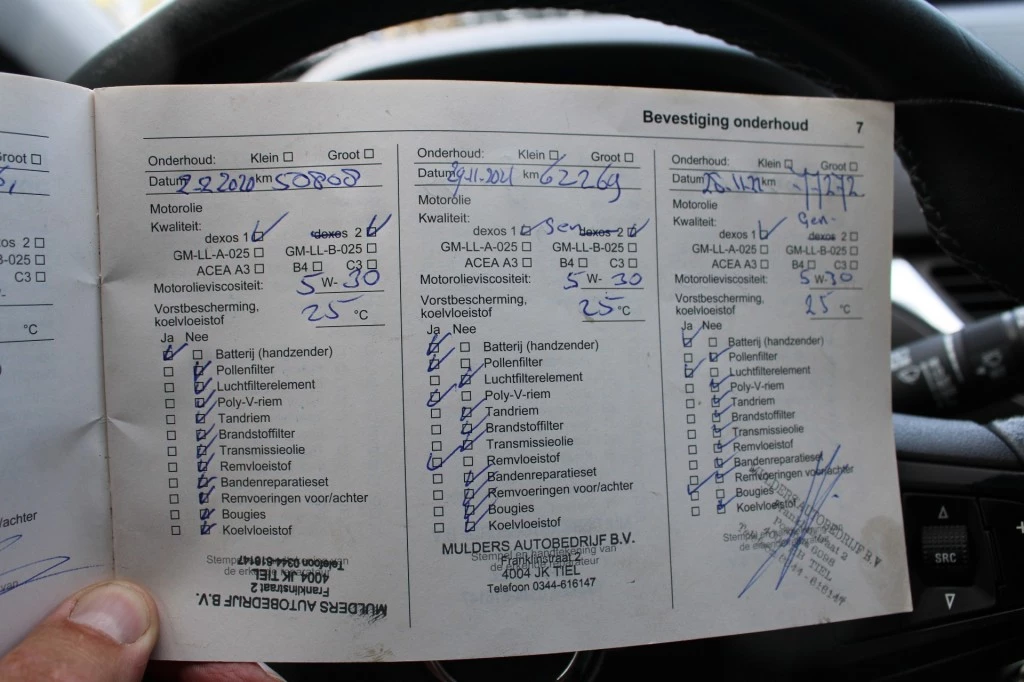 Bevestiging onderhoud 7
Groot
os 2
B-025
C3
°C
/achter
van
Onderhoud: Klein Groot
Datum km 50808
Motorolie
Kwaliteit:
dexos 1 dexos 2
GM-LL-A-025 GM-LL-B-025
ACEA A3 B4 C3
Motorolieviscositeit: 5 W- 30
Vorstbescherming,
koelvloeistof 25 °C
Ja Nee
Batterij (handzender)
Pollenfilter
Luchtfilterelement
Poly-V-riem
Tandriem
Brandstoffilter
Transmissieolie
Remvloeistof
Bandenreparatieset
Remvoeringen voor/achter
Bougies
Koelvloeistof
Stempel en handtekening van
de erkende reparateur
MULDERS AUTOBEDRIJF B.V.
Franklinstraat 2
4004 JK TIEL
Telefoon 0344-616147
Onderhoud: Klein Groot
Datum 29-11-2021 km 62269
Motorolie
Kwaliteit:
dexos 1 Gen dexos 2
GM-LL-A-025 GM-LL-B-025
ACEA A3 B4 C3
Motorolieviscositeit: 5 W- 30
Vorstbescherming,
koelvloeistof 25 °C
Ja Nee
Batterij (handzender)
Pollenfilter
Luchtfilterelement
Poly-V-riem
Tandriem
Brandstoffilter
Transmissieolie
Remvloeistof
Bandenreparatieset
Remvoeringen voor/achter
Bougies
Koelvloeistof
MULDERS AUTOBEDRIJF B.V.
Stempel en handtekening van
de erkende reparateur
Franklinstraat 2
4004 JK TIEL
Telefoon 0344-616147
Onderhoud: Klein Groot
Datum km 77272
Motorolie
Kwaliteit: Gen-
dexos 1 dexos 2
GM-LL-A-025 GM-LL-B-025
ACEA A3 B4 C3
Motorolieviscositeit: 5 W-30
Vorstbescherming,
koelvloeistof 25 °C
Ja Nee
Batterij (handzender)
Pollenfilter
Luchtfilterelement
Poly-V-riem
Tandriem
Brandstoffilter
Transmissieolie
Remvloeistof
Bandenreparatieset
Remvoeringen voor/achter
Bougies
Koelvloeistof
MULDERS AUTOBEDRIJF B.V.
TIEL
SRC